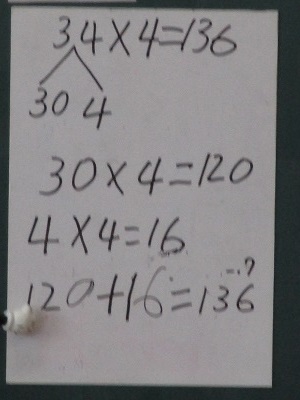 34×4=136
30 4
30×4=120
4×4=16
120+16=136